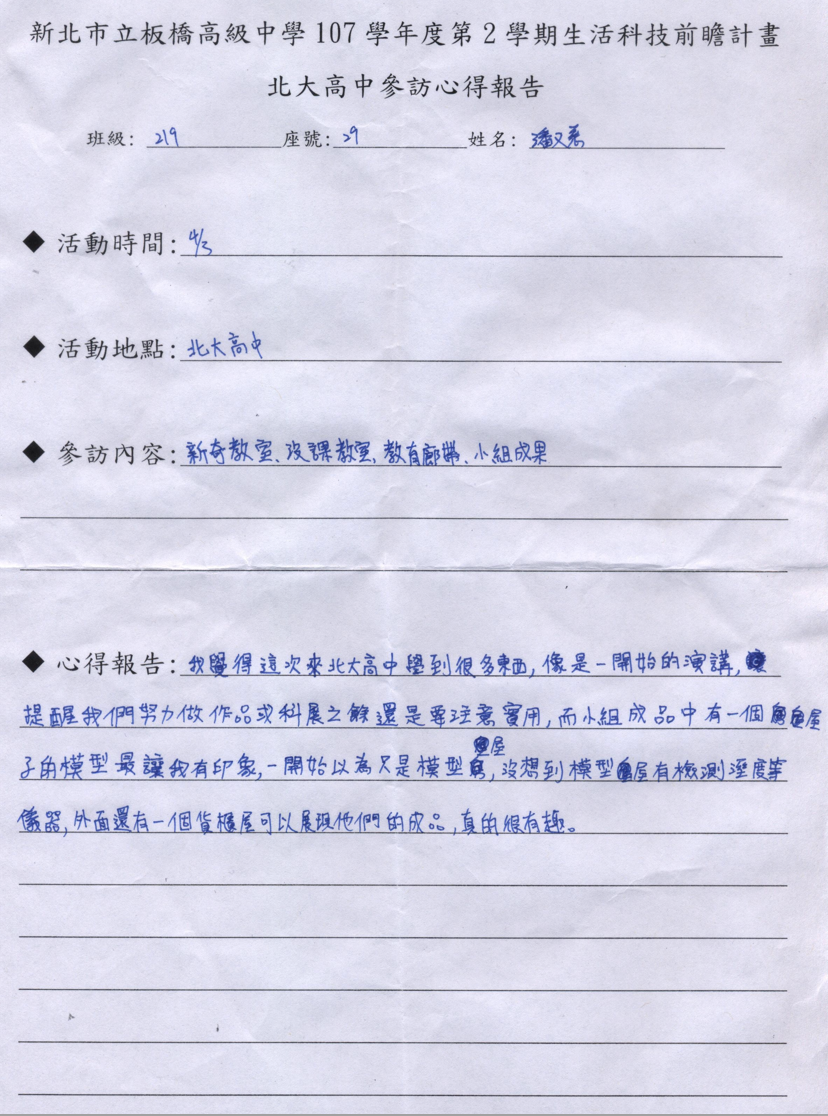 新北市立板橋高級中學 107 學年度第 2 學期生活科技前瞻計畫
北大高中參訪心得報告
班級: 219 座號: 29 姓名: 潘又
◆ 活動時間: 4/3
◆ 活動地點: 北大高中
◆ 參訪內容: 新奇教室、沒課教室、教育廊、小組成果
◆ 心得報告: 我覺得這次來北大高中學到很多東西, 像是一開始的演講,
提醒我們努力做作品或科展之餘還是要注意實用, 而小組成品中有一個屋
子的模型最讓我有印象, 一開始以為只是模型屋, 沒想到模型屋有檢測溼度等
儀器, 外面還有一個貨櫃屋可以展現他們的成品, 真的很有趣。